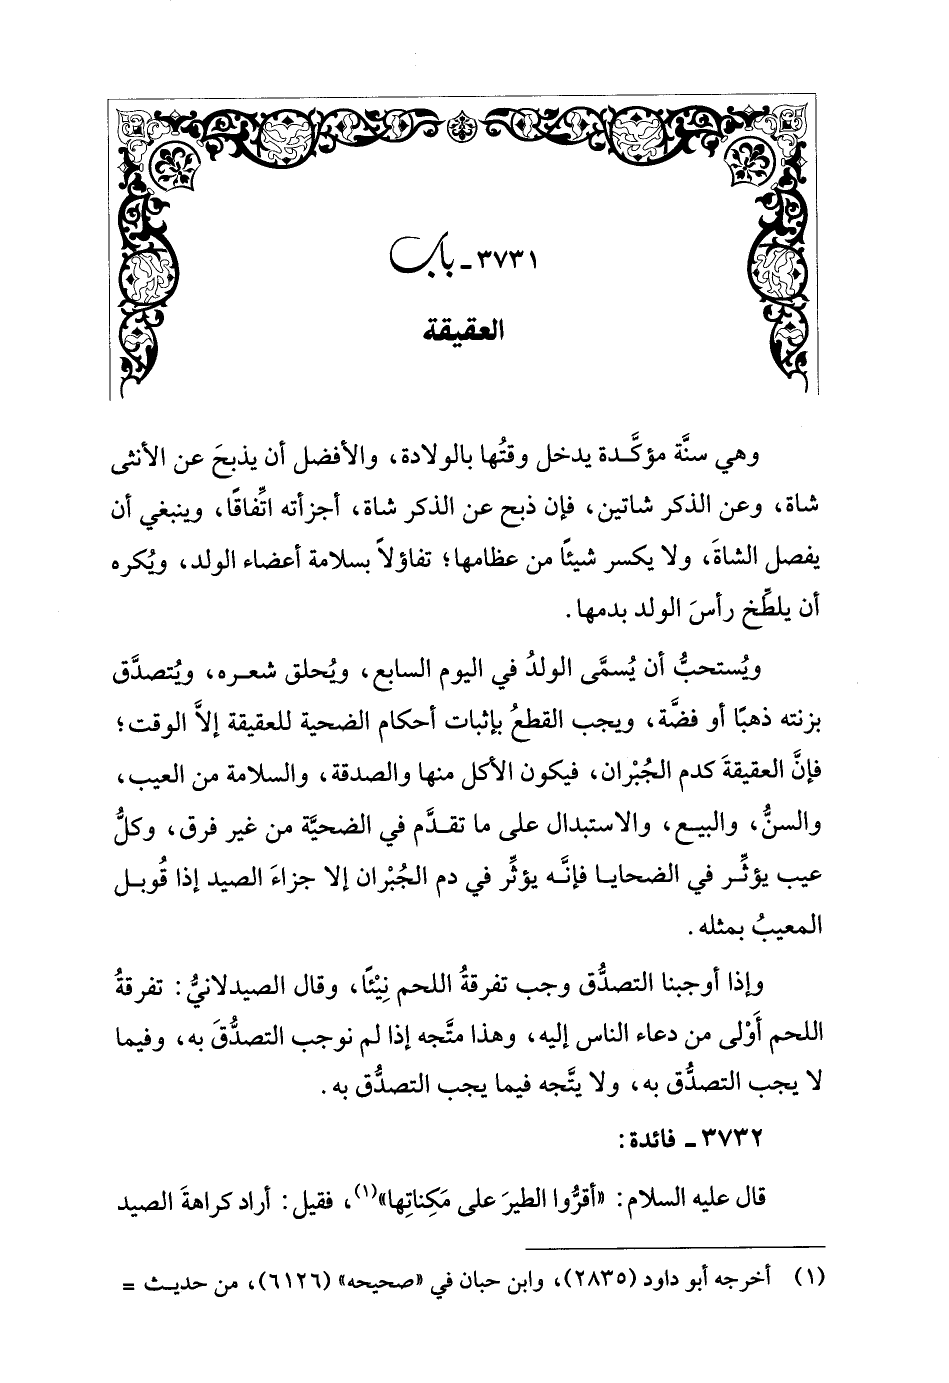 ٣٧٣١ - باب
العقيقة
وهي سنَّة مؤكَّـدة يدخل وقتُها بالولادة، والأفضل أن يذبحَ عن الأنثى
شاة، وعن الذكر شاتين، فإن ذبح عن الذكر شاة، أجزأته اتِّفاقًا، وينبغي أن
يفصل الشاةَ، ولا يكسر شيئًا من عظامها؛ تفاؤلاً بسلامة أعضاء الولد، ويُكره
أن يلطِّخ رأسَ الولد بدمها.
ويُستحبُّ أن يُسمَّى الولدُ في اليوم السابع، ويُحلق شعـره، ويُتصدَّق
بزنته ذهبًا أو فضَّة، ويجب القطعُ بإثبات أحكام الضحية للعقيقة إلاَّ الوقت؛
فإنَّ العقيقةَ كدم الجُبْران، فيكون الأكل منها والصدقة، والسلامة من العيب،
والسنُّ، والبيـع، والاستبدال على ما تقـدَّم في الضحيَّة من غير فرق، وكلُّ
عيب يؤثِّـر في الضحايـا فإنَّـه يؤثِّر في دم الجُبْران إلا جزاءَ الصيد إذا قُوبـل
المعيبُ بمثله.
وإذا أوجبنا التصدُّق وجب تفرقةُ اللحم نِيْئًا، وقال الصيدلانيُّ: تفرقةُ
اللحم أَوْلى من دعاء الناس إليه، وهذا متَّجه إذا لم نوجب التصدُّقَ به، وفيما
لا يجب التصدُّق به، ولا يتَّجه فيما يجب التصدُّق به.
٣٧٣٢ - فائدة:
قال عليه السلام: «أقرُّوا الطيرَ على مَكِناتِها»(١)، فقيل: أراد كراهةَ الصيد
(١) أخرجه أبو داود (٢٨٣٥)، وابن حبان في «صحيحه» (٦١٢٦)، من حديـث =